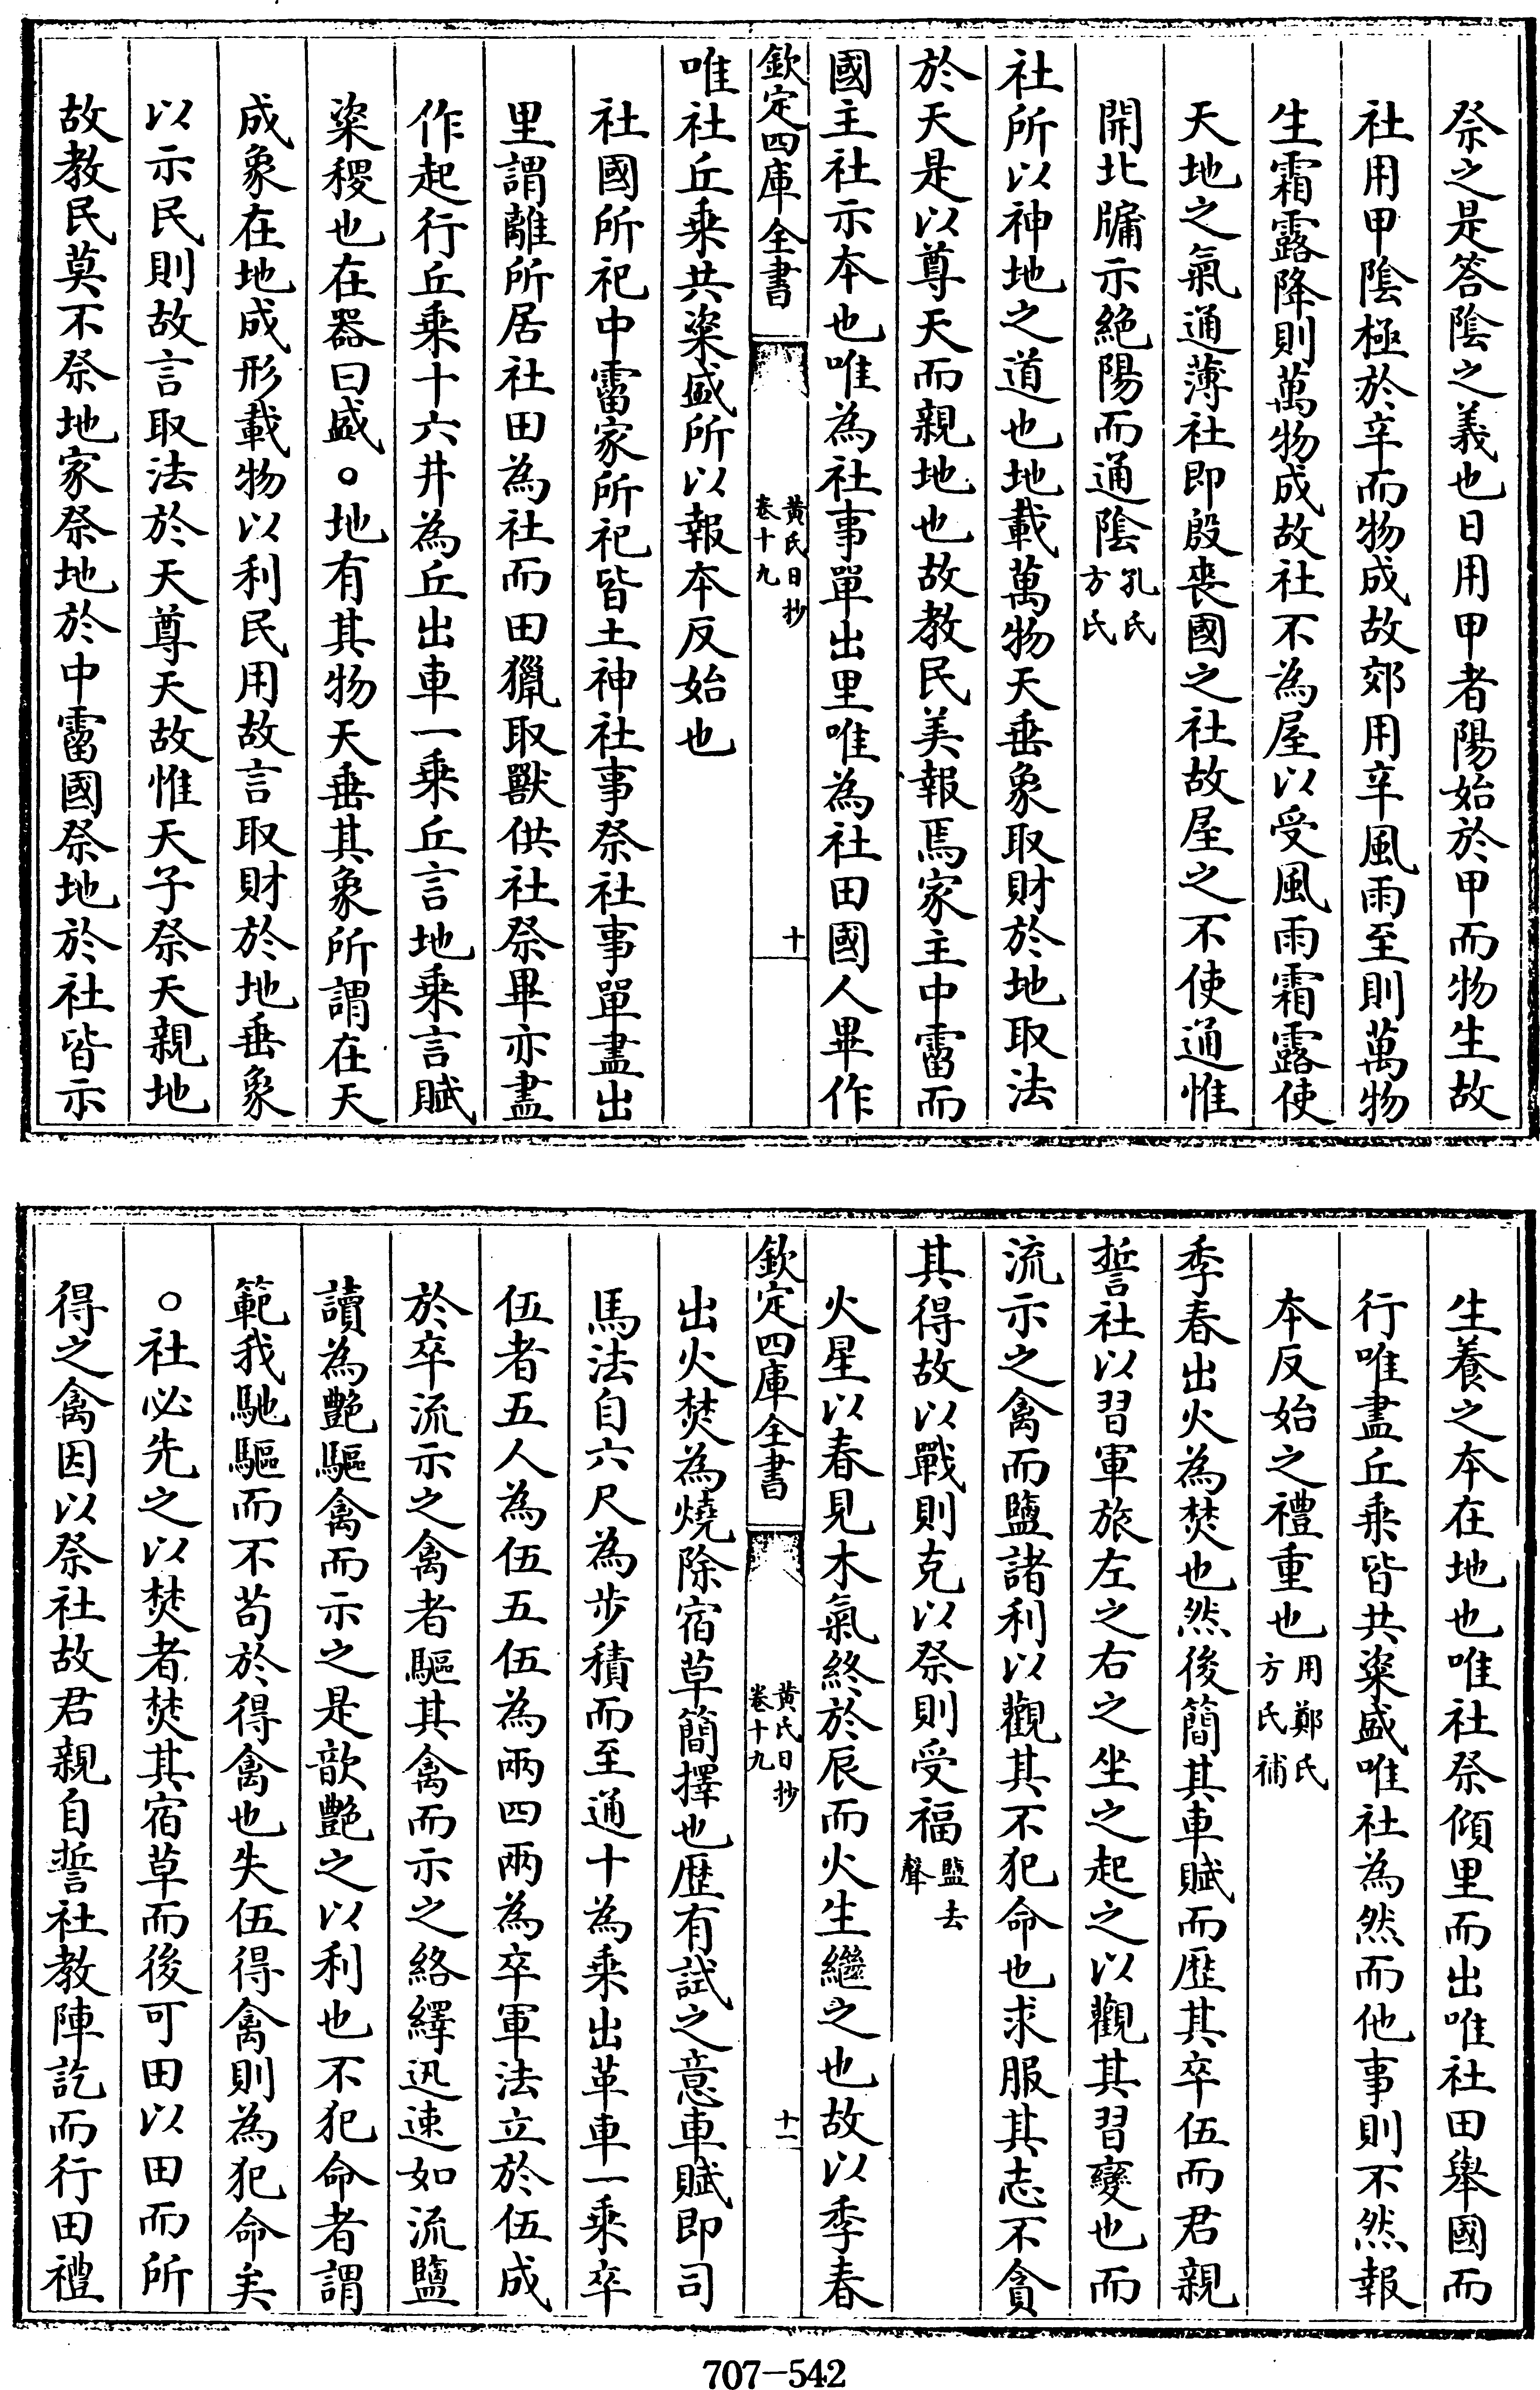 祭之是答隂之義也日用甲者陽始於甲而物生故
社用甲隂極於辛而物成故郊用辛風雨至則萬物
生霜露降則萬物成故社不為屋以受風雨霜露使
天地之氣通薄社即殷喪國之社故屋之不使通惟
開北牖示絶陽而通隂孔氏方氏
社所以神地之道也地載萬物天垂象取財於地取法
於天是以尊天而親地也故教民美報焉家主中霤而
國主社示本也唯為社事單出里唯為社田國人畢作
欽定四庫全書 黄氏日抄 卷十九 十
唯社丘乘共粢盛所以報本反始也
社國所祀中霤家所祀皆土神社事祭社事單盡出
里謂離所居社田為社而田獵取獸供社祭畢亦盡
作起行丘乘十六井為丘出車一乘丘言地乘言賦
粢稷也在器曰盛○地有其物天垂其象所謂在天
成象在地成形載物以利民用故言取財於地垂象
以示民則故言取法於天尊天故惟天子祭天親地
故教民莫不祭地家祭地於中霤國祭地於社皆示
生養之本在地也唯社祭傾里而出唯社田舉國而
行唯盡丘乘皆共粢盛唯社為然而他事則不然報
本反始之禮重也用鄭氏方氏補
季春出火為焚也然後簡其車賦而歴其卒伍而君親
誓社以習軍旅左之右之坐之起之以觀其習變也而
流示之禽而鹽諸利以觀其不犯命也求服其志不貪
其得故以戰則克以祭則受福鹽去聲
火星以春見木氣終於辰而火生繼之也故以季春
欽定四庫全書 黄氏日抄 卷十九 十一
出火焚為燒除宿草簡擇也歴有試之意車賦即司
馬法自六尺為步積而至通十為乘出革車一乘卒
伍者五人為伍五伍為兩四兩為卒軍法立於伍成
於卒流示之禽者驅其禽而示之絡繹迅速如流鹽
讀為艷驅禽而示之是歆艷之以利也不犯命者謂
範我馳驅而不苟於得禽也失伍得禽則為犯命矣
○社必先之以焚者焚其宿草而後可田以田而所
得之禽因以祭社故君親自誓社教陣訖而行田禮
707-542